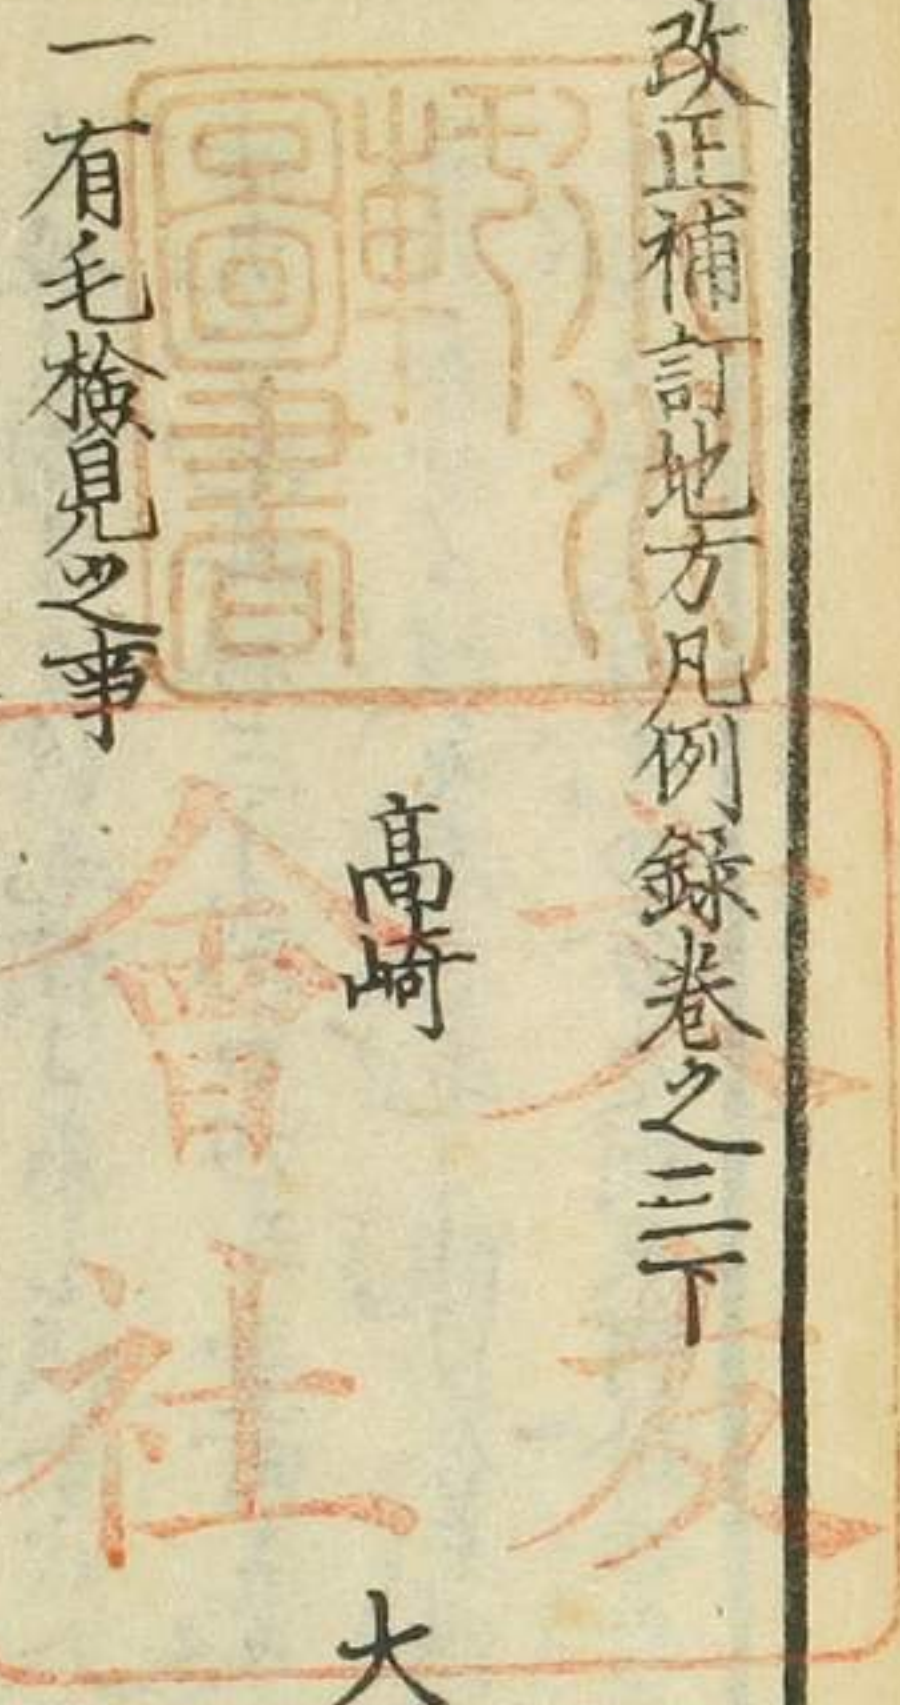 改正補訂地方凡例録巻之三下
高崎 大
一有毛撿見之事
圖書
文友
會社